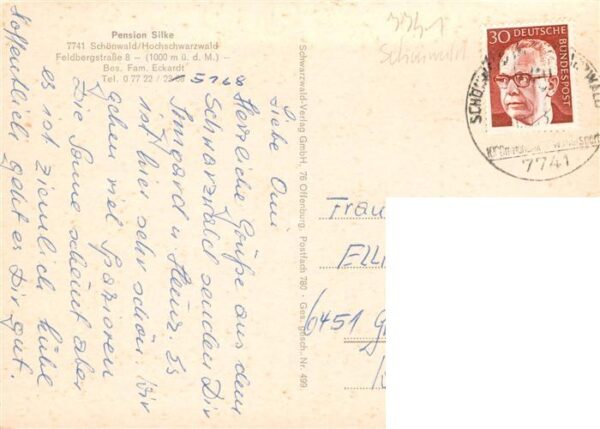 Pension Silke
7741 Schönwald/Hochschwarzwald
Feldbergstraße 8 – (1000 m ü. d. M.) –
Bes. Fam. Eckardt
Tel. 0 77 22 /
5168
Liebe Omi
Herzliche Grüße aus dem
Schwarzwald senden Dir
Irmgard u. Heinz. Es
ist hier sehr schön. Wir
gehen viel spazieren
Die Sonne scheint aber
es ist ziemlich kühl
Hoffentlich geht es Dir gut.
Schwarzwald-Verlag GmbH, 76 Offenburg, Postfach 780 · Ges. gesch. Nr. 499
7741
Schönwald
30 DEUTSCHE
BUNDESPOST
7741
Frau
6451